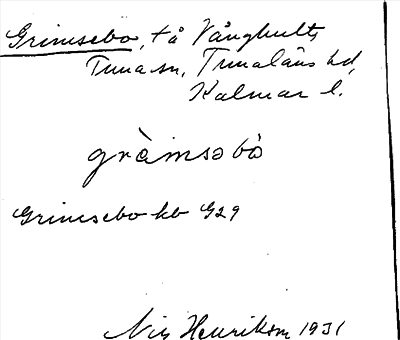 Grimsebo, tå Vångbults
Tuna sn, Tunaläns hd,
Kalmar l.
grà̀msəbò
Grimsebo hb G29
Nils Henrikson 1931